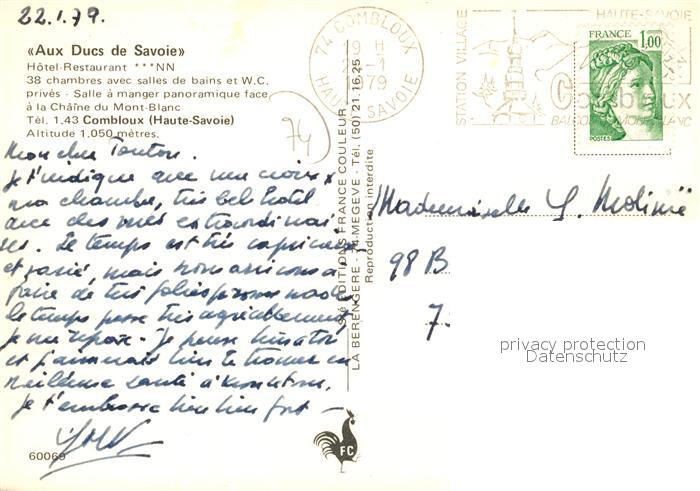 22.1.79.
«Aux Ducs de Savoie»
Hôtel-Restaurant ***NN
38 chambres avec salles de bains et W.C.
privés - Salle à manger panoramique face
à la Chaîne du Mont-Blanc
Tél. 1,43 Combloux (Haute-Savoie)
Altitude 1.050 mètres.
74
Mon cher Tonton.
Je t'indique avec une croix x
ma chambre, très bel hôtel
avec des vues extraordinai
res. Le temps est très capricieux
et varié, mais nous arrivons à
faire de très jolies promenades
le temps passe très agréablement,
je me repose. Je pense
et j'aimerais bien te trouver en
meilleure santé à mon retour.
Je t'embrasse bien bien fort —
60069
Sté EDITIONS FRANCE COULEUR
LA BERENGERE - 74-MEGEVE - TEL. (50) 21.16.25
Reproduction interdite
FC
74 COMBLOUX
9 H
-1
79
HAUTE SAVOIE
STATION VILLAGE
HAUTE-SAVOIE
Combloux
BALCON DU MONT-BLANC
FRANCE
1,00
POSTES
Mademoiselle Y. Molinié
98 B
7
privacy protection
Datenschutz